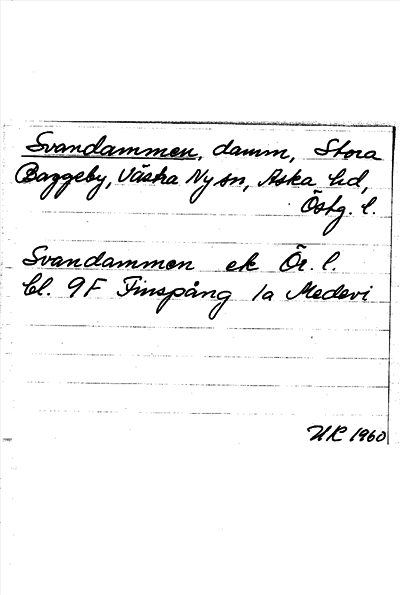 Svandammen, damm, Stora
Baggeby, Västra Ny sn, Aska hd,
Östg. l.
Svandammen ek Ör. l.
bl. 9F Finspång 1a Medevi
HR 1960